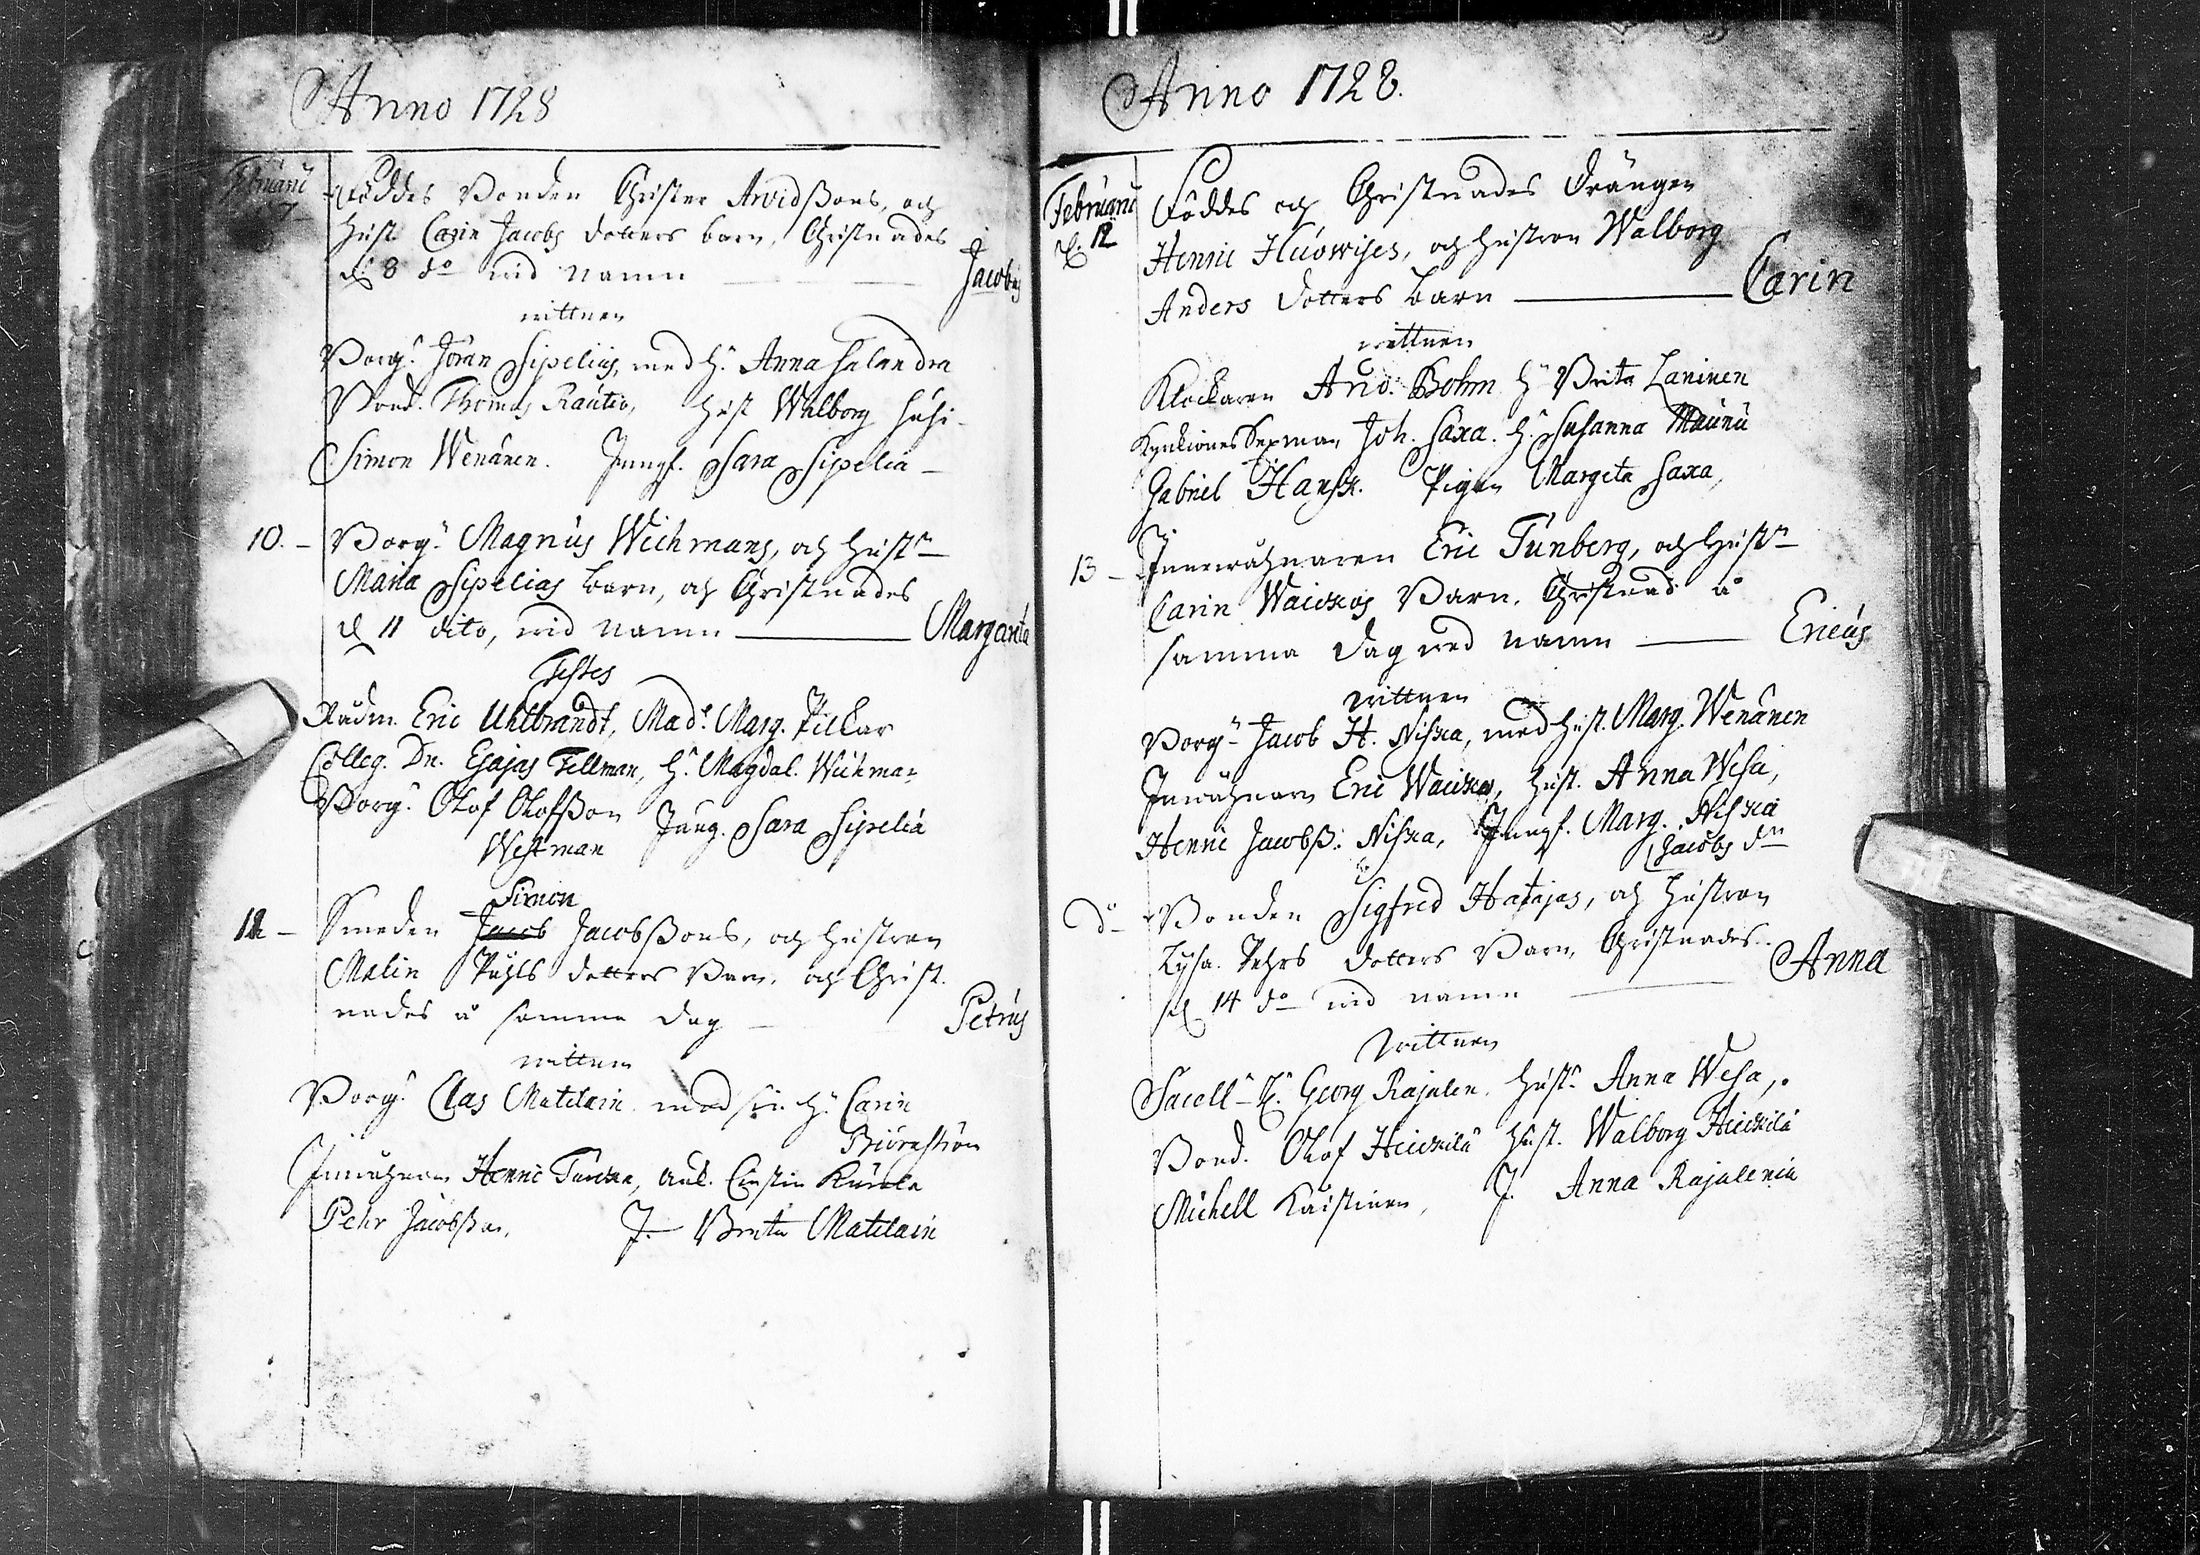 Anno 1728
Februarii
7
Föddes Bonden Christer Arvidßons, och
Hust. Carin Jacobs dotters barn, Christnades
d. 8 do wid namn Jacobus
wittnen
Borg. Jöran Sipelius, med h. Anna Salandra
Bond. Thomas Rautio, Hust Walborg Susi
Simon Wenänen. Jungf. Sara Sipelia
10. Borg. Magnus Wichmans, och Hustr
Maria Sipelias barn, och Christnades
d 11 dito, wid namn Margareta
Testes
Rådm. Eric Uhlbrandt, Mad. Marg. Pictar
Colleg. Dn. Esajas Fellman, h. Magdal. Wichman
Borg. Olof Olofßon Jung. Sara Sipelia
Westman
Simon
Smeden Jacob Jacobßons, och hustrun
Malin Påhls dotters Barn, och Christ
nades å samma dag Petrus
wittnen
Borg. Clas Matilain med sin h. Carin
Biörnström
Inwåhnare Henric Turcka, Enk. Cirstin
Pehr Jacobßon, J. Brita Matilain
Anno 1728.
Februarii
d. 12
Föddes och Christnades Drängen
Henric Huowises, och hustrun Walborg
Anders dotters barn Carin
wittnen
Klockaren And. Bohm h. Brita Laninen
Kyrkiones Sexman Joh. Saxa. h. Susanna Maunu
Gabriel Hanss. Pigan Margeta Saxa,
13 Innewåhnaren Eric Tunberg, och Hustr
Carin Waickos Barn, Christnad å
samma dag wed namn Ericus
wittnen
Borg. Jacob H. Niska, med Hust. Marg. Wenänen
Inwåhnare Eric Waicko, Hust. Anna Wesa,
Henric Jacobß: Niska, Jungf. Marg. Niska
Jacobs dr
do Bonden Sigfred Hatajas, och hustrun
Lysa Pehrs dotters Barn, Christnades
d 14 do wid namn Anna
wittnen
Sacell. H. Georg Rajalen. Hust. Anna Wesa,
Bond. Olof Heickilä Hust. Walborg Heickilä
Michell Kaistinen, J. Anna Rajalenia